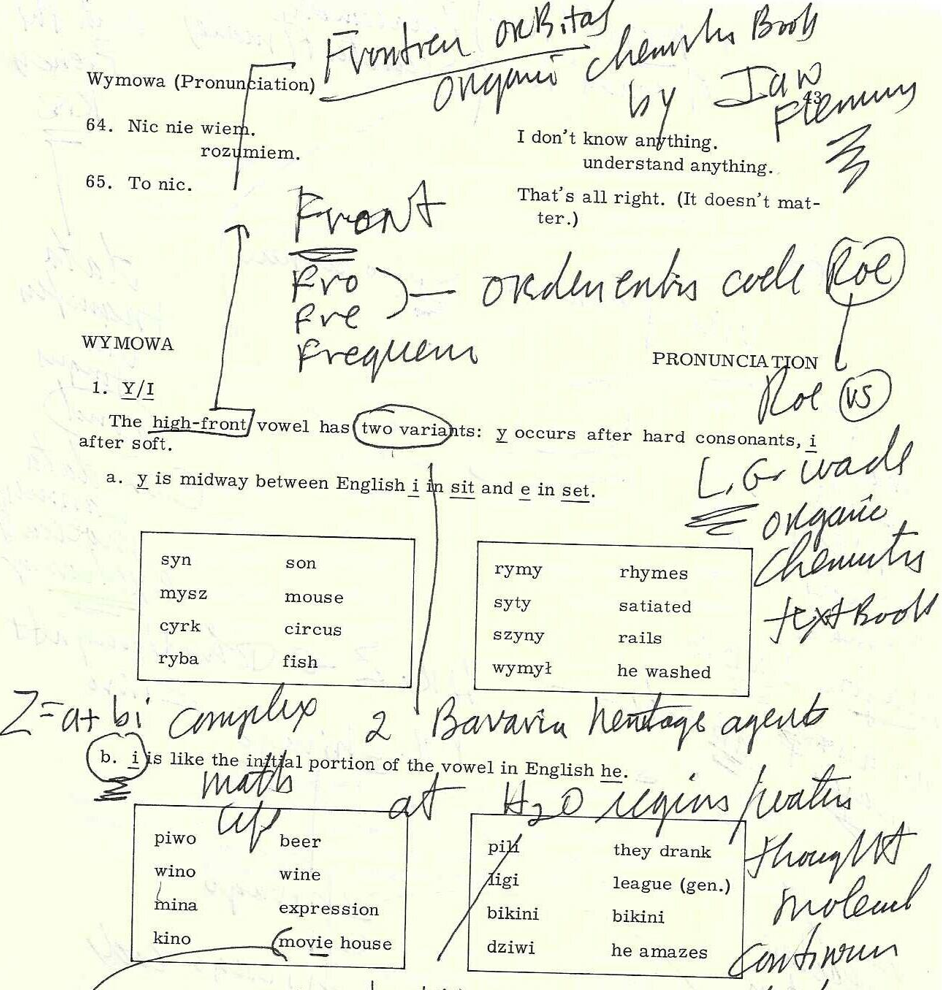 Frontren orBitas
organic chemistry Book
by Ian
Flemmng
Wymowa (Pronunciation)
43
64. Nic nie wiem.
rozumiem.
I don't know anything.
understand anything.
65. To nic.
That's all right. (It doesn't mat-
ter.)
Front
Fro
Fre
Frequem
code Roe
WYMOWA
PRONUNCIATION
Roe vs
1. Y/I
The high-front vowel has two variants: y occurs after hard consonants, i
after soft.
L. G. wade
a. y is midway between English i in sit and e in set.
organic
Chemistry
textBook
syn son
mysz mouse
cyrk circus
ryba fish
rymy rhymes
syty satiated
szyny rails
wymył he washed
Z=a+bi complex
2 Bavaria heritage agents
b. i is like the initial portion of the vowel in English he.
math
at H2O regions/
thought
piwo beer
wino wine
mina expression
kino movie house
pili they drank
ligi league (gen.)
bikini bikini
dziwi he amazes